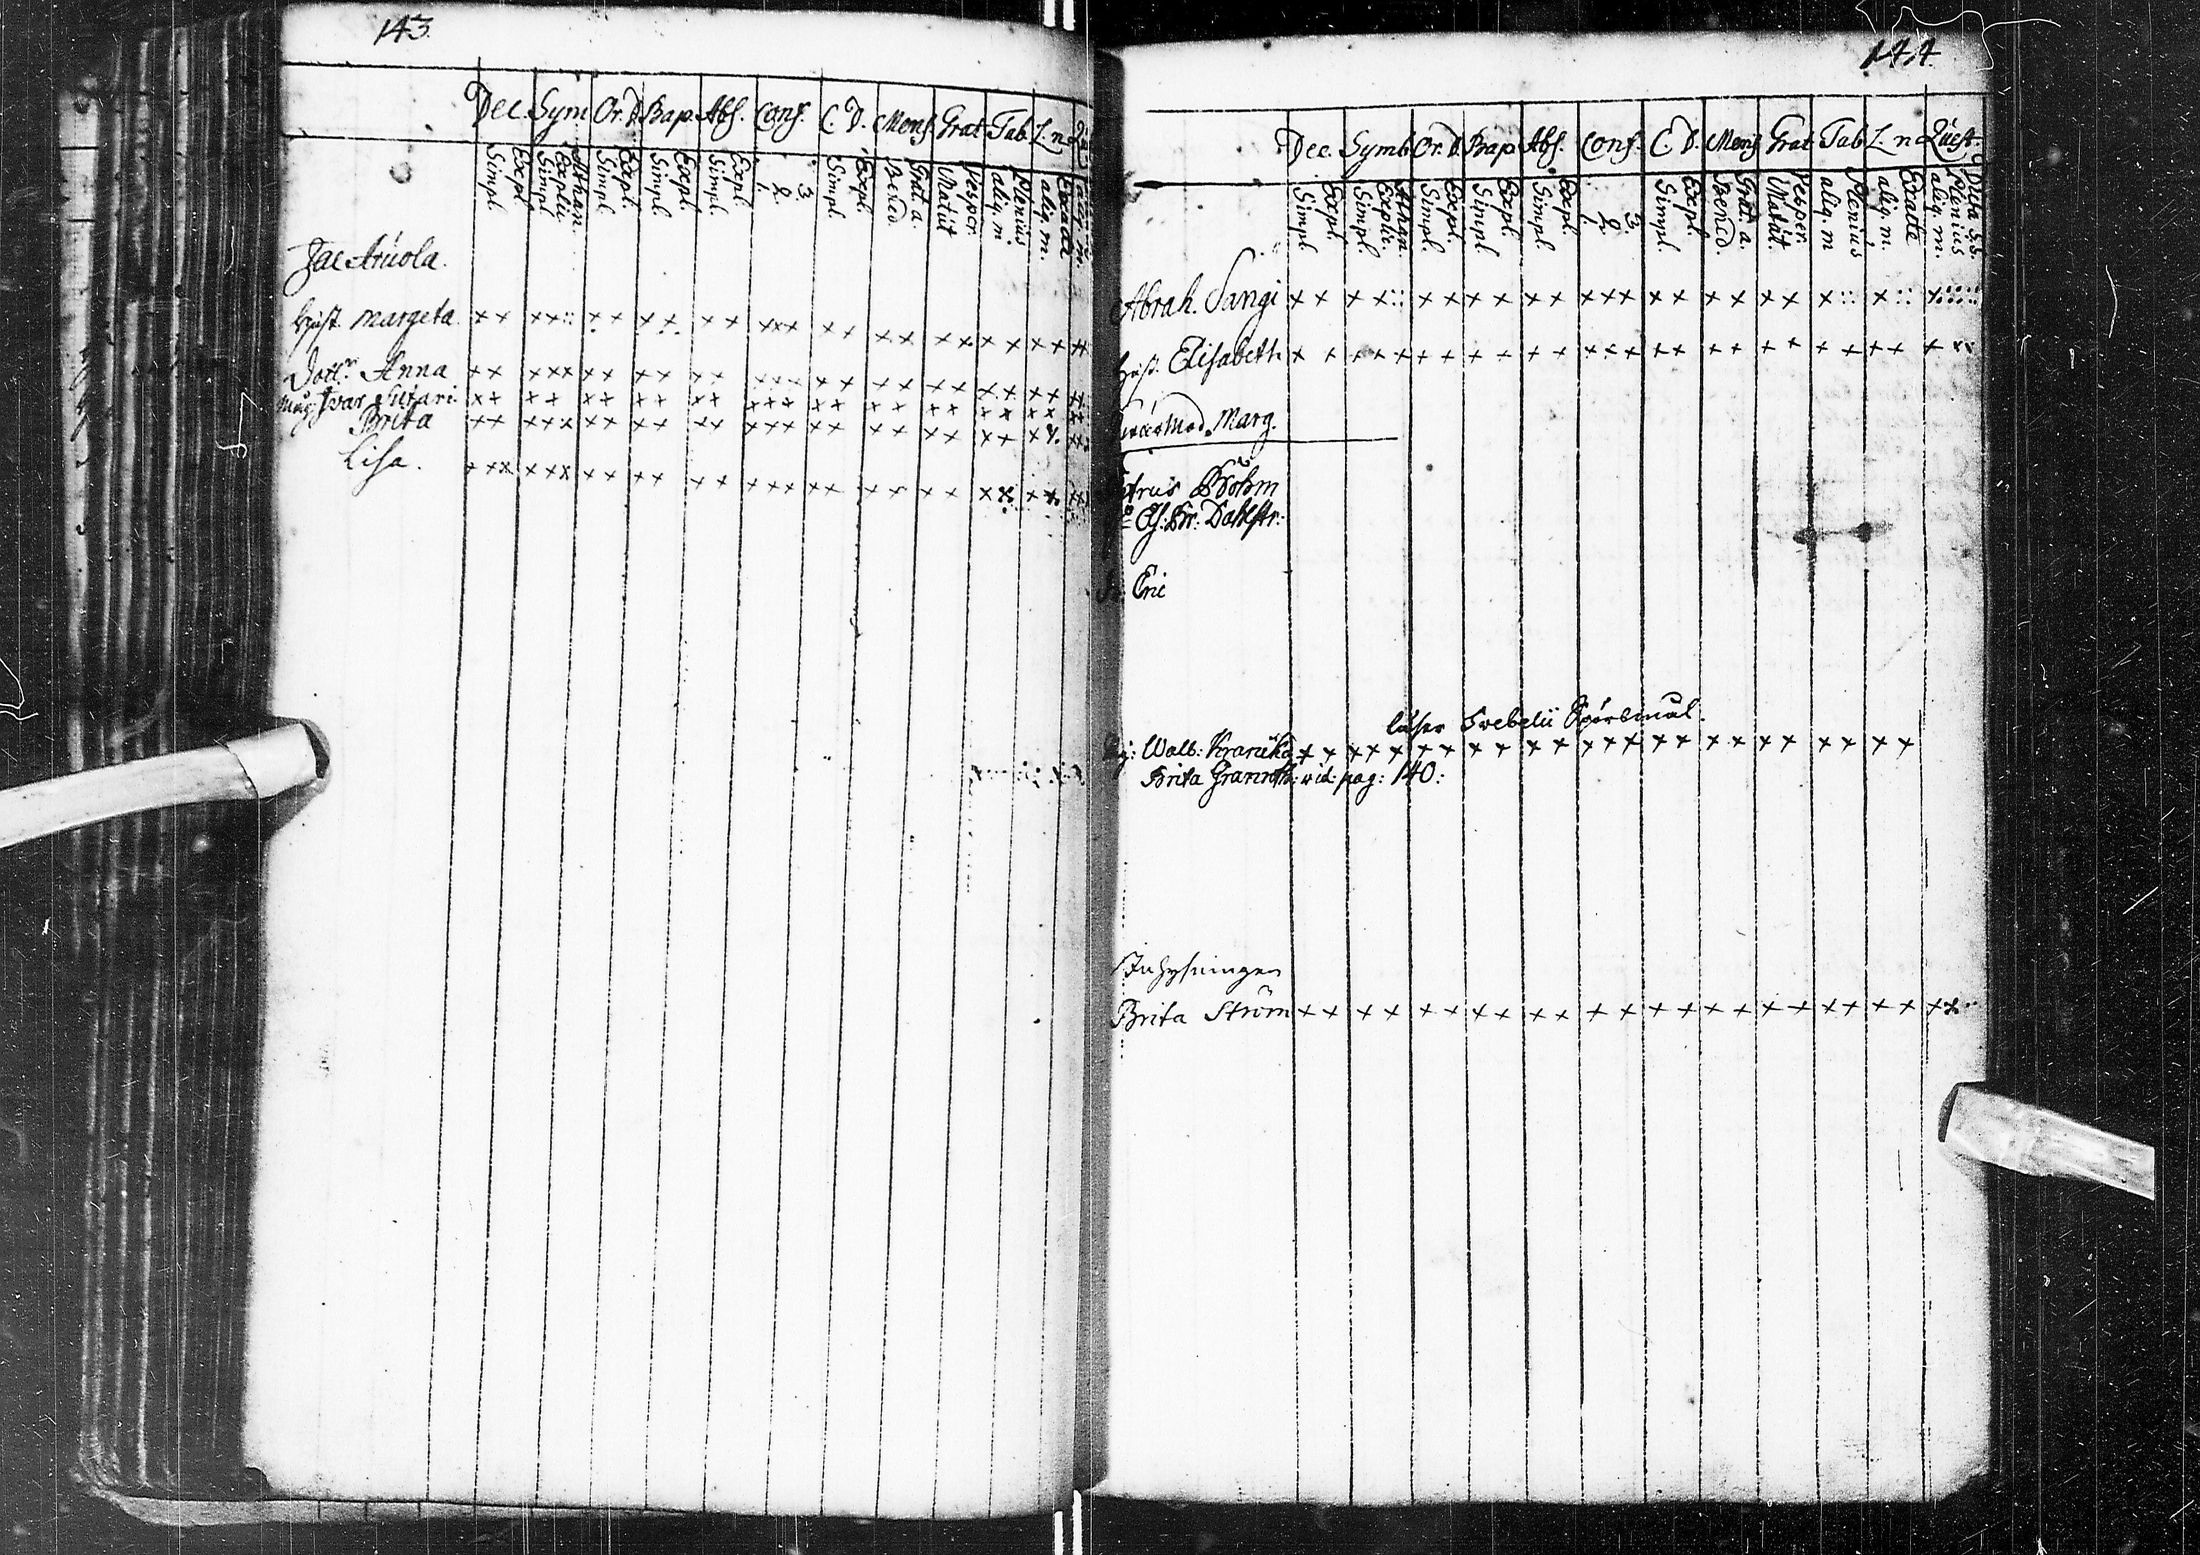 143.
Dec. Sym Or. D. Bap. Abs. Conf. C. D. Mens Grat Tab L. n
Simpl. Expl. Simpl Explic. Athan. Simpl. Expl. Simpl. Expl. Simpl. Expl. 1. 2. 3. Simpl. Expl. Bened. Grat. a. Matut Vesper. aliq. m. Plenius aliq. m. Exacte
Jac Aruola.
Hust. Margeta. x x x x :: x x x x x x x x x x x x x x x x x x x x
Dottr Anna x x x x x x x x x x x x x x x x x x x x x x x x x x
Måg: Ivar Sutari x x x x x x x x x x x x x x x x x x x x x x x x x
Brita x x x x x x x x x x x x x x x x x x x x x x x x x x
Lisa. x x x x x x x x x x x x x x x x x x x x x x x x x x x
144.
Dec. Symb Or. D. Bap. Abs. Conf. C. D. Mens Grat Tab L. n Quest.
Simpl. Expl. Simpl. Explic. Athan. Simpl. Expl. Simpl Expl. Simpl Expl. 1. 2. 3. Simpl. Expl. Bened. Grat. a. Matut. Vesper. aliq. m Plenius aliq. m. Exacte aliq. m. Plenius Dicta S.S.
Abrah. Sangi x x x x :: x x x x x x x x x x x x x x x x :: x :: x ::::
Hust. Elisabeth x x x x x x x x x x x x x x x x x x x x x x x x x x
Marg.
Böhm
Dahlstr:
Eric
läser Svebelii Spörsmål.
Walb: x x x x x x x x x x x x x x x x x x x x x x x x
Brita Granroth: vid: pag: 140:
Inhysningen
Brita Ström x x x x x x x x x x x x x x x x x x x x x x x x